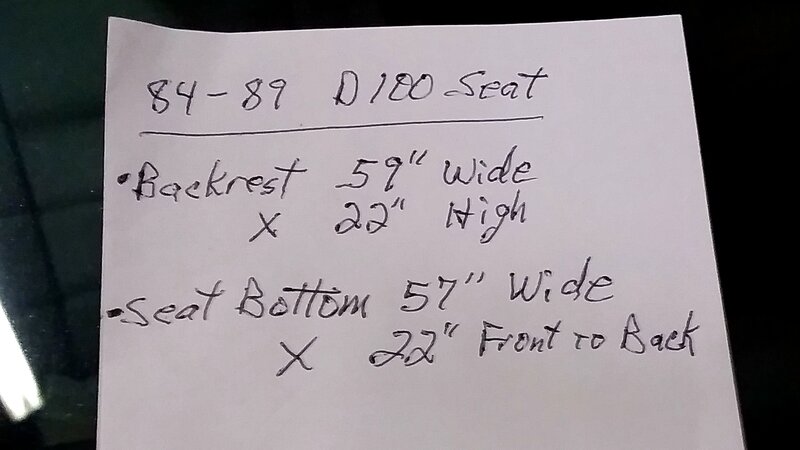 84-89 D100 Seat
•Backrest 59" Wide
X 22" High
•Seat Bottom 57" Wide
X 22" Front to Back